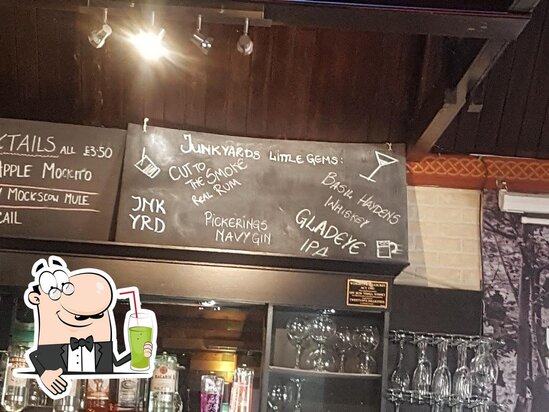 TAILS ALL £3.50
APPLE MOCKITO
MOCKSCOW MULE
TAIL
JUNKYARDS LITTLE GEMS:
CUT TO
THE SMOKE
REAL RUM
JNK
YRD
PICKERINGS
NAVY GIN
BASIL HAYDENS
WHISKEY
GLADEYE
IPA